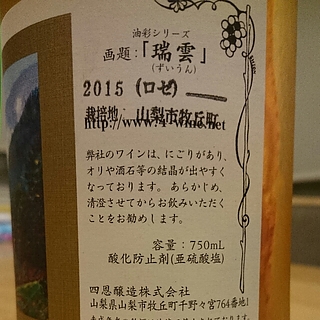 油彩シリーズ
画題：「瑞雲」
(ずいうん)
2015 (ロゼ)
栽培地 山梨市牧丘町
http://www.4-wine.net
弊社のワインは、にごりがあり、
オリや酒石等の結晶が出やすく
なっております。あらかじめ、
清澄させてからお飲みいただく
ことをお勧めします。
容量：750mL
酸化防止剤(亜硫酸塩)
四恩醸造株式会社
山梨県山梨市牧丘町千野々宮764番地1